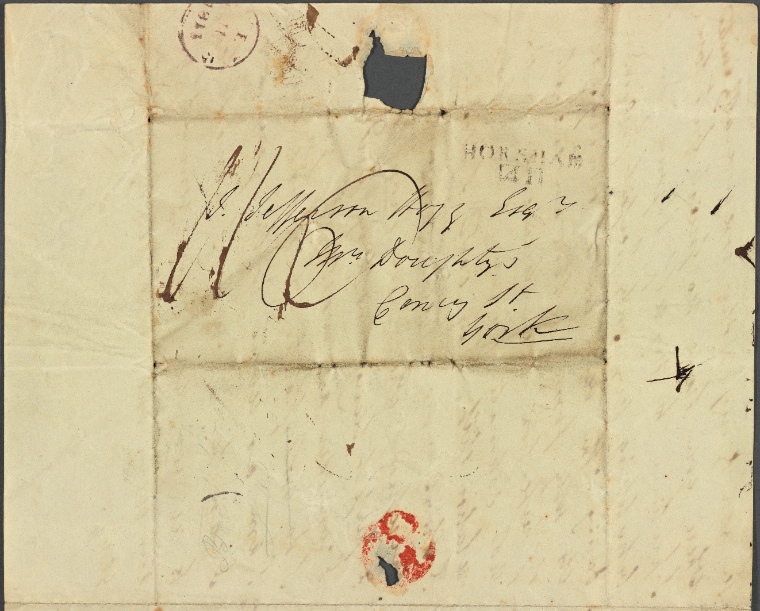 1811
HORSHAM
T. Jefferson Hogg Esqr
Mrs Doughty's
Coney St
York